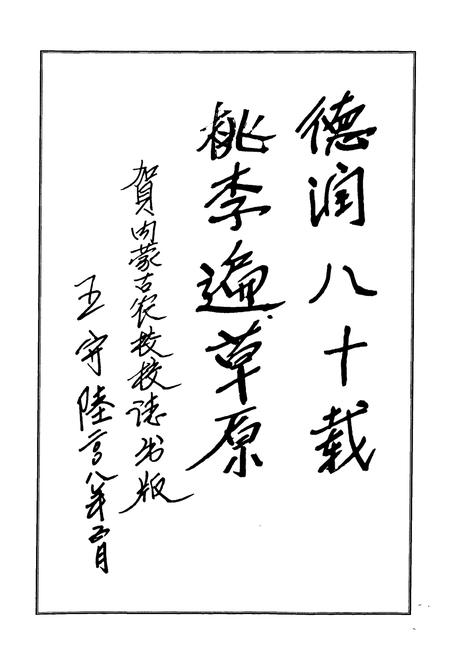 德润八十载
桃李遍草原
賀内蒙古农校校誌出版
王守陸二〇〇八年月